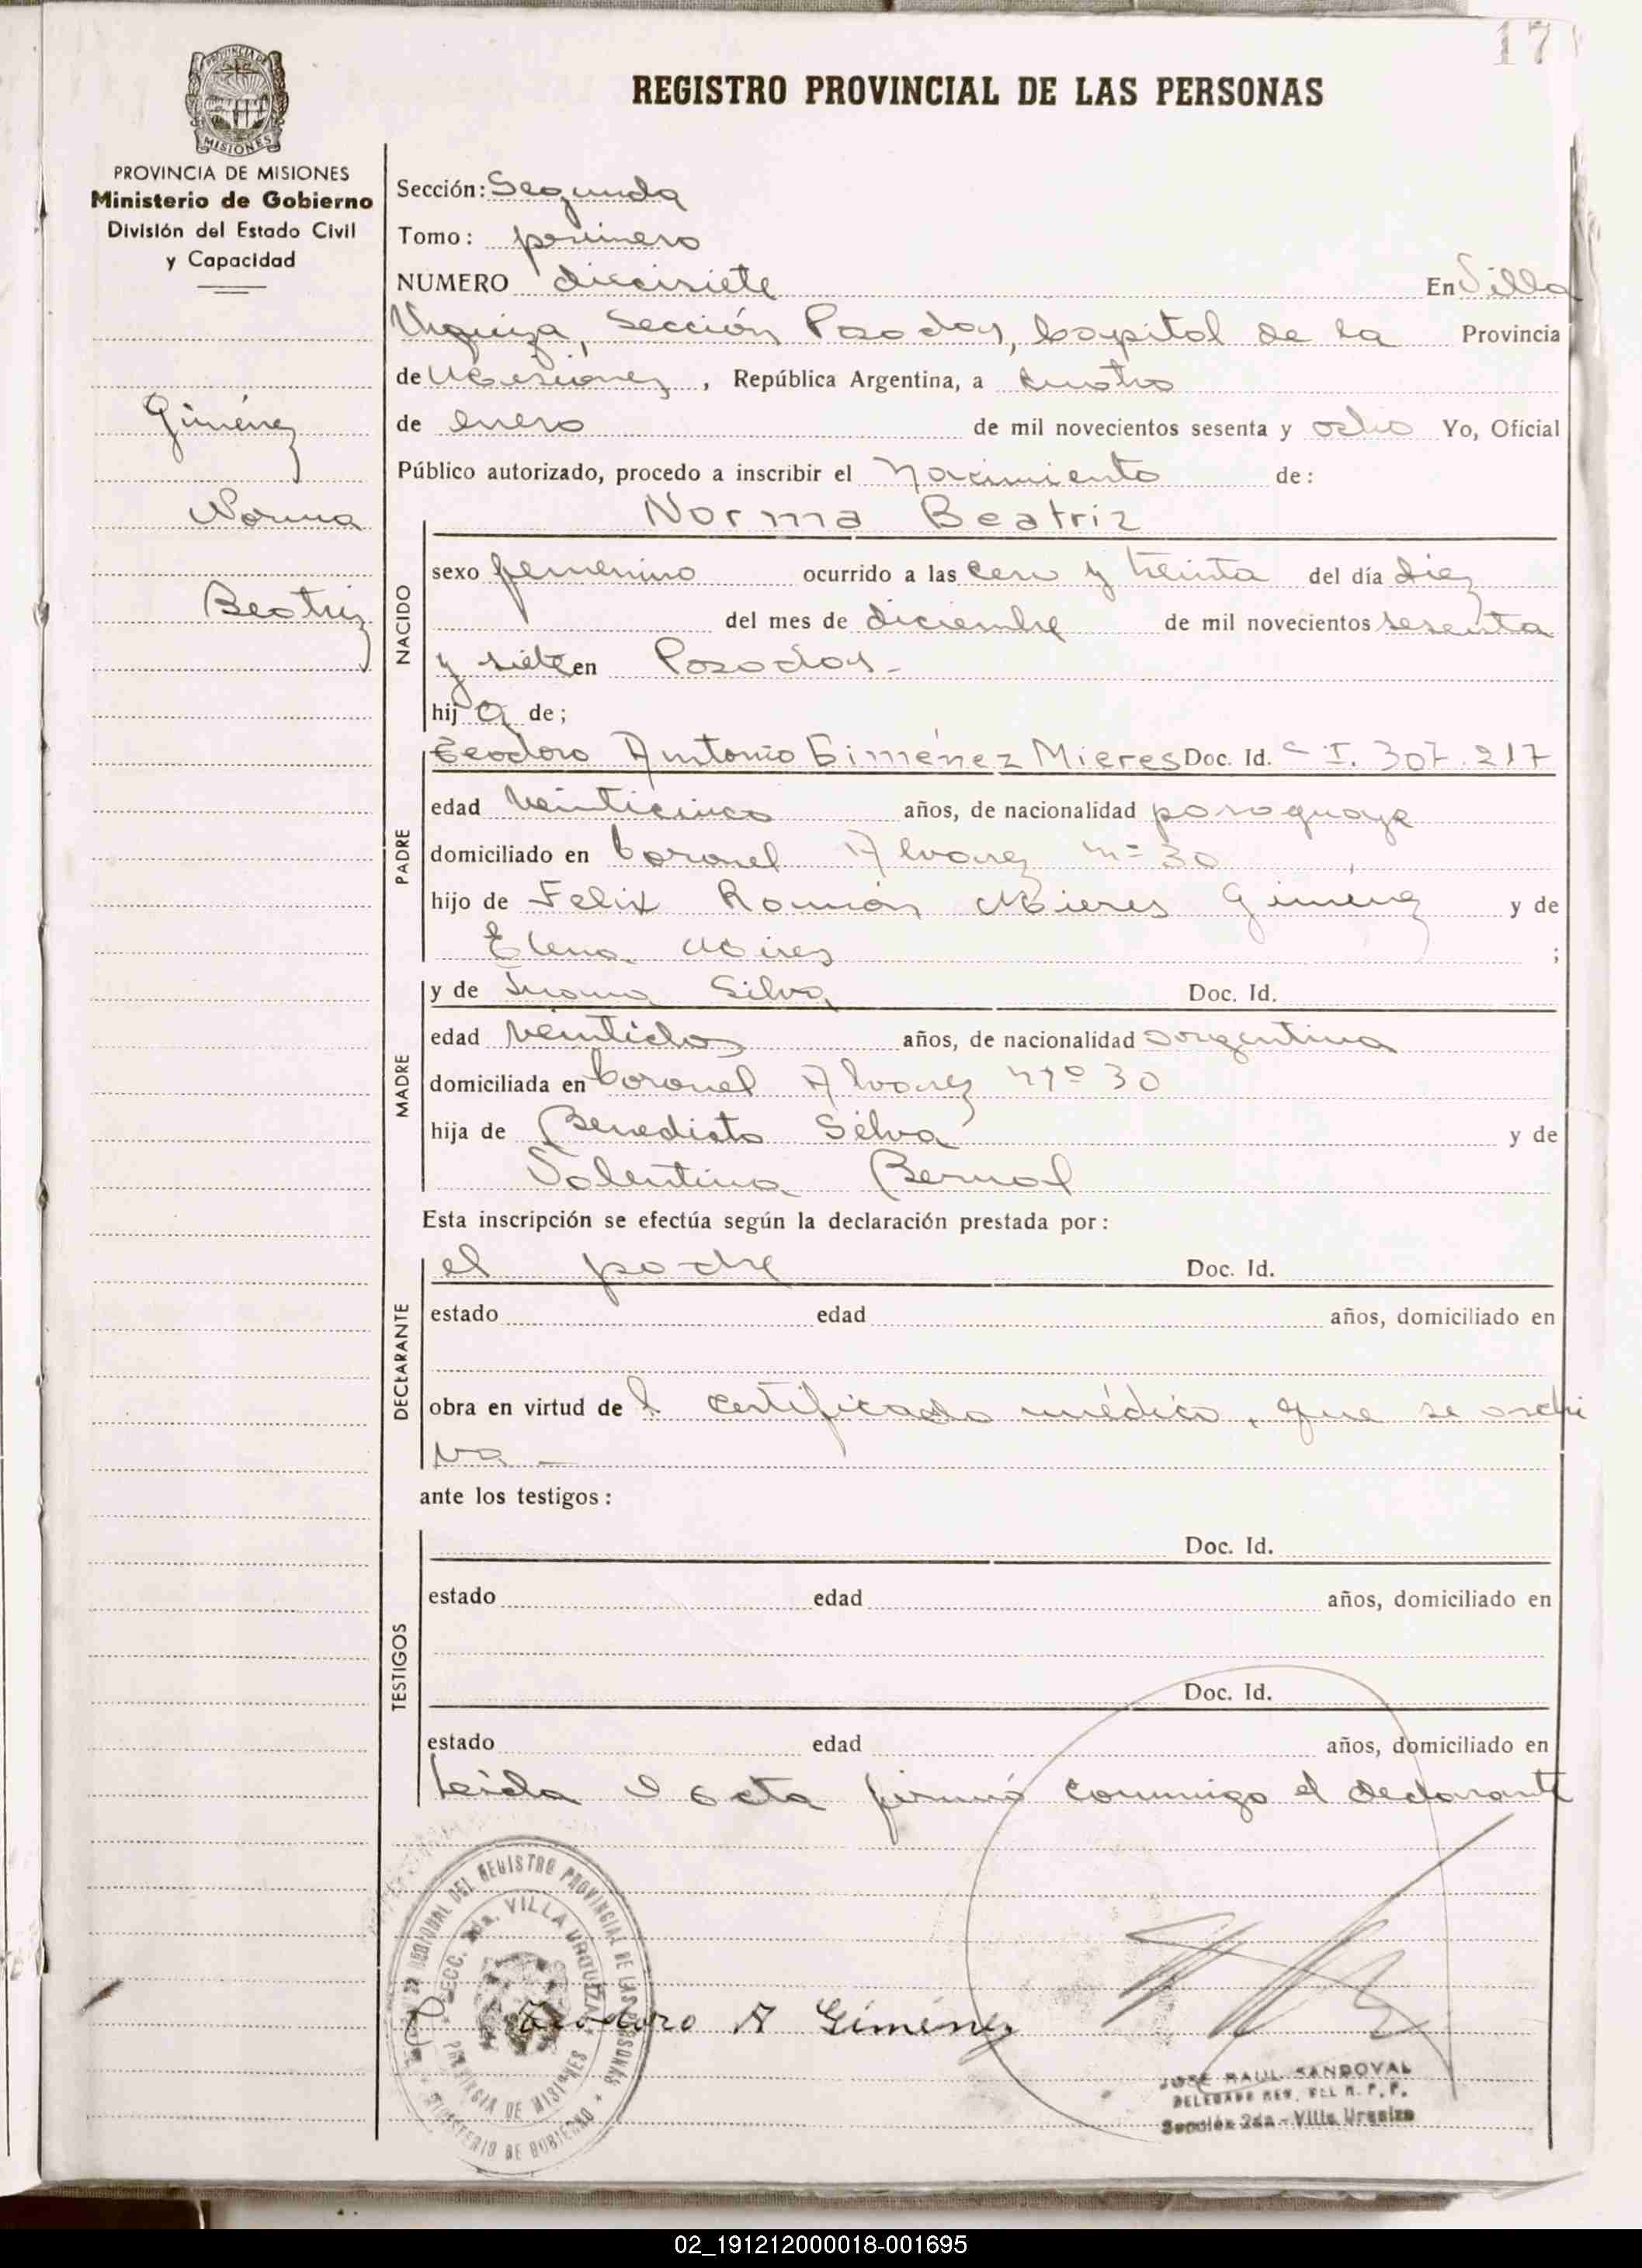 17
PROVINCIA DE
MISIONES
REGISTRO PROVINCIAL DE LAS PERSONAS
PROVINCIA DE MISIONES
Ministerio de Gobierno
División del Estado Civil
y Capacidad
Giménez
Norma
Beatriz
Sección: Segunda
Tomo: primero
NUMERO diecisiete En Villa
Urquiza, Sección Posadas, Capital de la Provincia
de Misiones, República Argentina, a cuatro
de enero de mil novecientos sesenta y ocho Yo, Oficial
Público autorizado, procedo a inscribir el nacimiento de:
Norma Beatriz
NACIDO
sexo femenino ocurrido a las cero y treinta del día diez
del mes de diciembre de mil novecientos sesenta
y siete en Posadas.-
hija de;
PADRE
Teodoro Antonio Giménez Mieres Doc. Id. C. I. 307.217
edad veinticinco años, de nacionalidad paraguaya
domiciliado en Coronel Alvarez nº 30
hijo de Felix Román Mieres Giménez y de
Elena Mires ;
MADRE
y de Juana Silva Doc. Id.
edad veintidos años, de nacionalidad argentina
domiciliada en Coronel Alvarez nº 30
hija de Benedicto Silva y de
Valentina Bernal
Esta inscripción se efectúa según la declaración prestada por:
DECLARANTE
el padre Doc. Id.
estado edad años, domiciliado en
obra en virtud del certificado médico, que se archi
va -
ante los testigos:
TESTIGOS
Doc. Id.
estado edad años, domiciliado en
Doc. Id.
estado edad años, domiciliado en
Leída el acta firmó conmigo el declarante
REGIONAL DEL REGISTRO PROVINCIAL DE LAS PERSONAS
SECC. 2da. VILLA URQUIZA
PROVINCIA DE MISIONES
MINISTERIO DE GOBIERNO
Teodoro A Giménez
JOSE RAUL SANDOVAL
DELEGADO REG. DEL R. P. P.
Sección 2da - Villa Urquiza
02_191212000018-001695